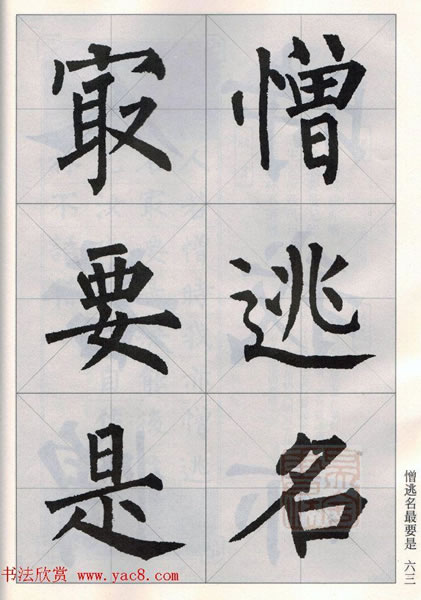 憎逃名
冣要是
憎逃名最要是 六三
书法欣赏 www.yac8.com